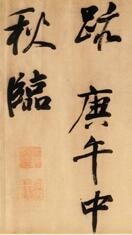 跋庚午中
秋臨